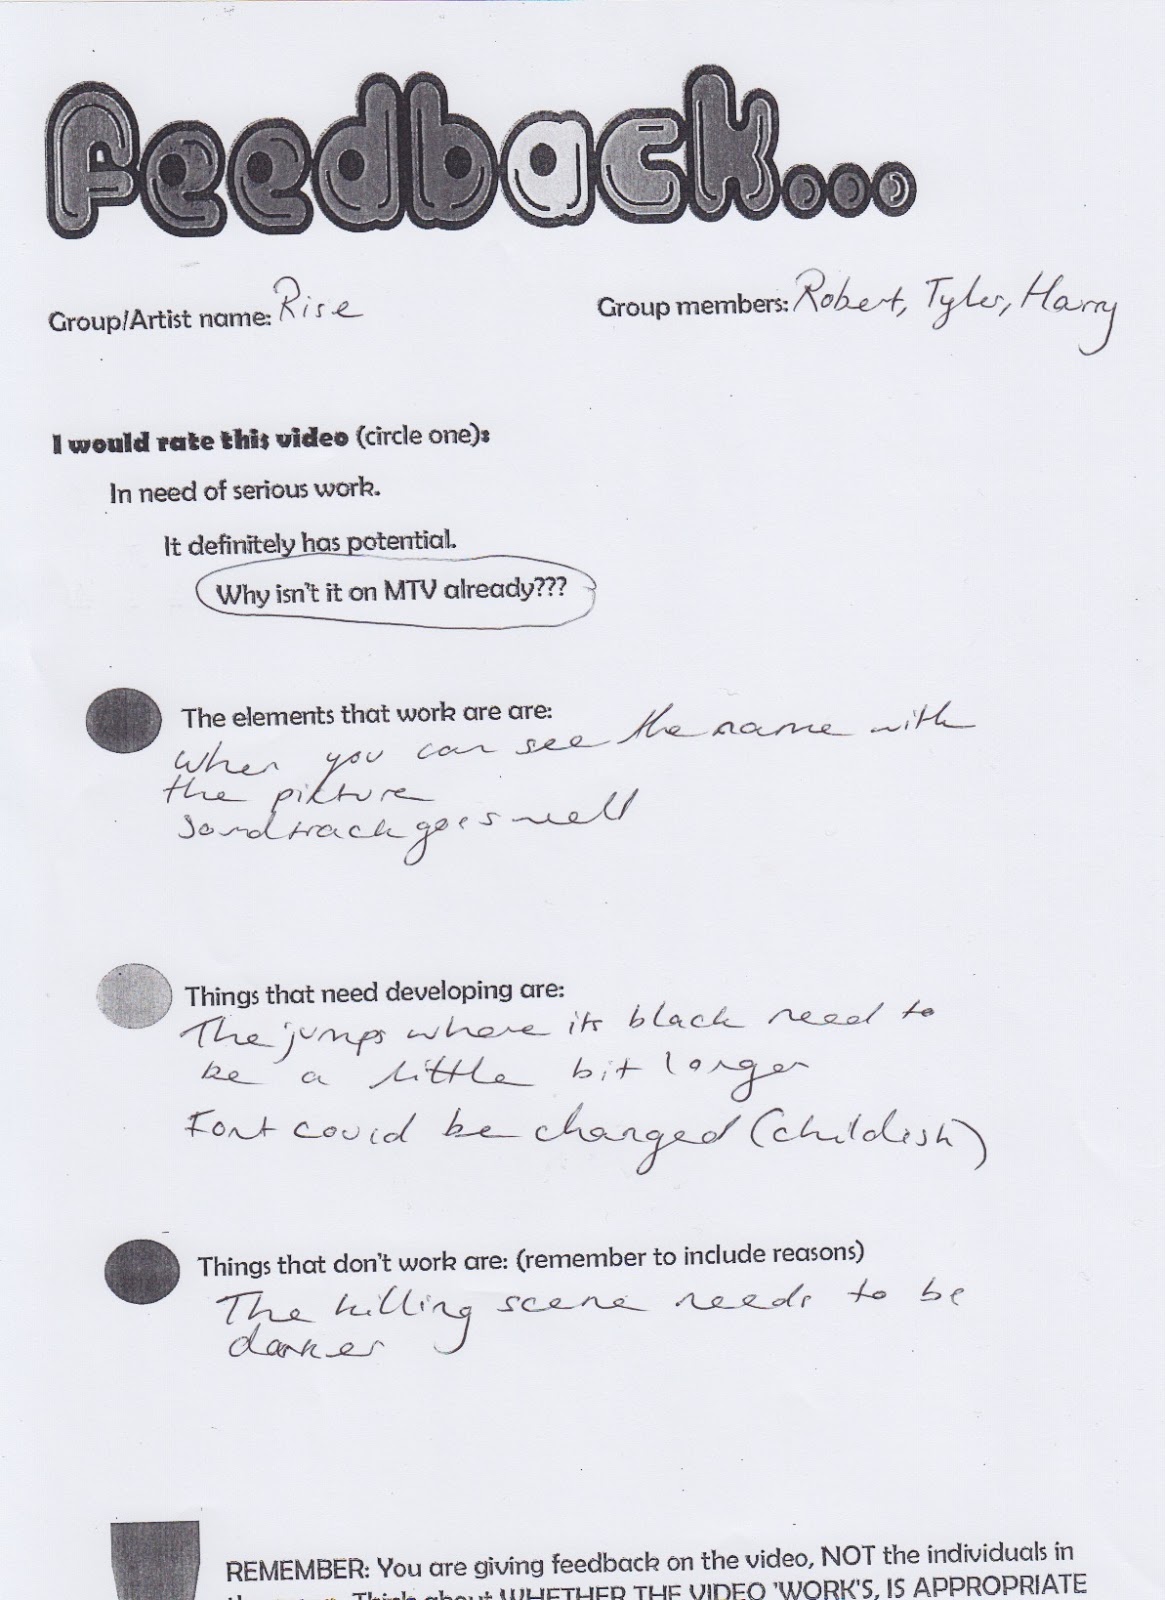 feedback...
Group/Artist name: Rise
Group members: Robert, Tyler, Harry
I would rate this video (circle one):
In need of serious work.
It definitely has potential.
Why isn't it on MTV already???
The elements that work are are:
When you can see the name with
the pikture
Soundtrack goes well
Things that need developing are:
The jumps where its black need to
be a little bit longer
Font could be changed (childish)
Things that don't work are: (remember to include reasons)
The killing scene needs to be
darker
REMEMBER: You are giving feedback on the video, NOT the individuals in
Think about WHETHER THE VIDEO 'WORK'S, IS APPROPRIATE